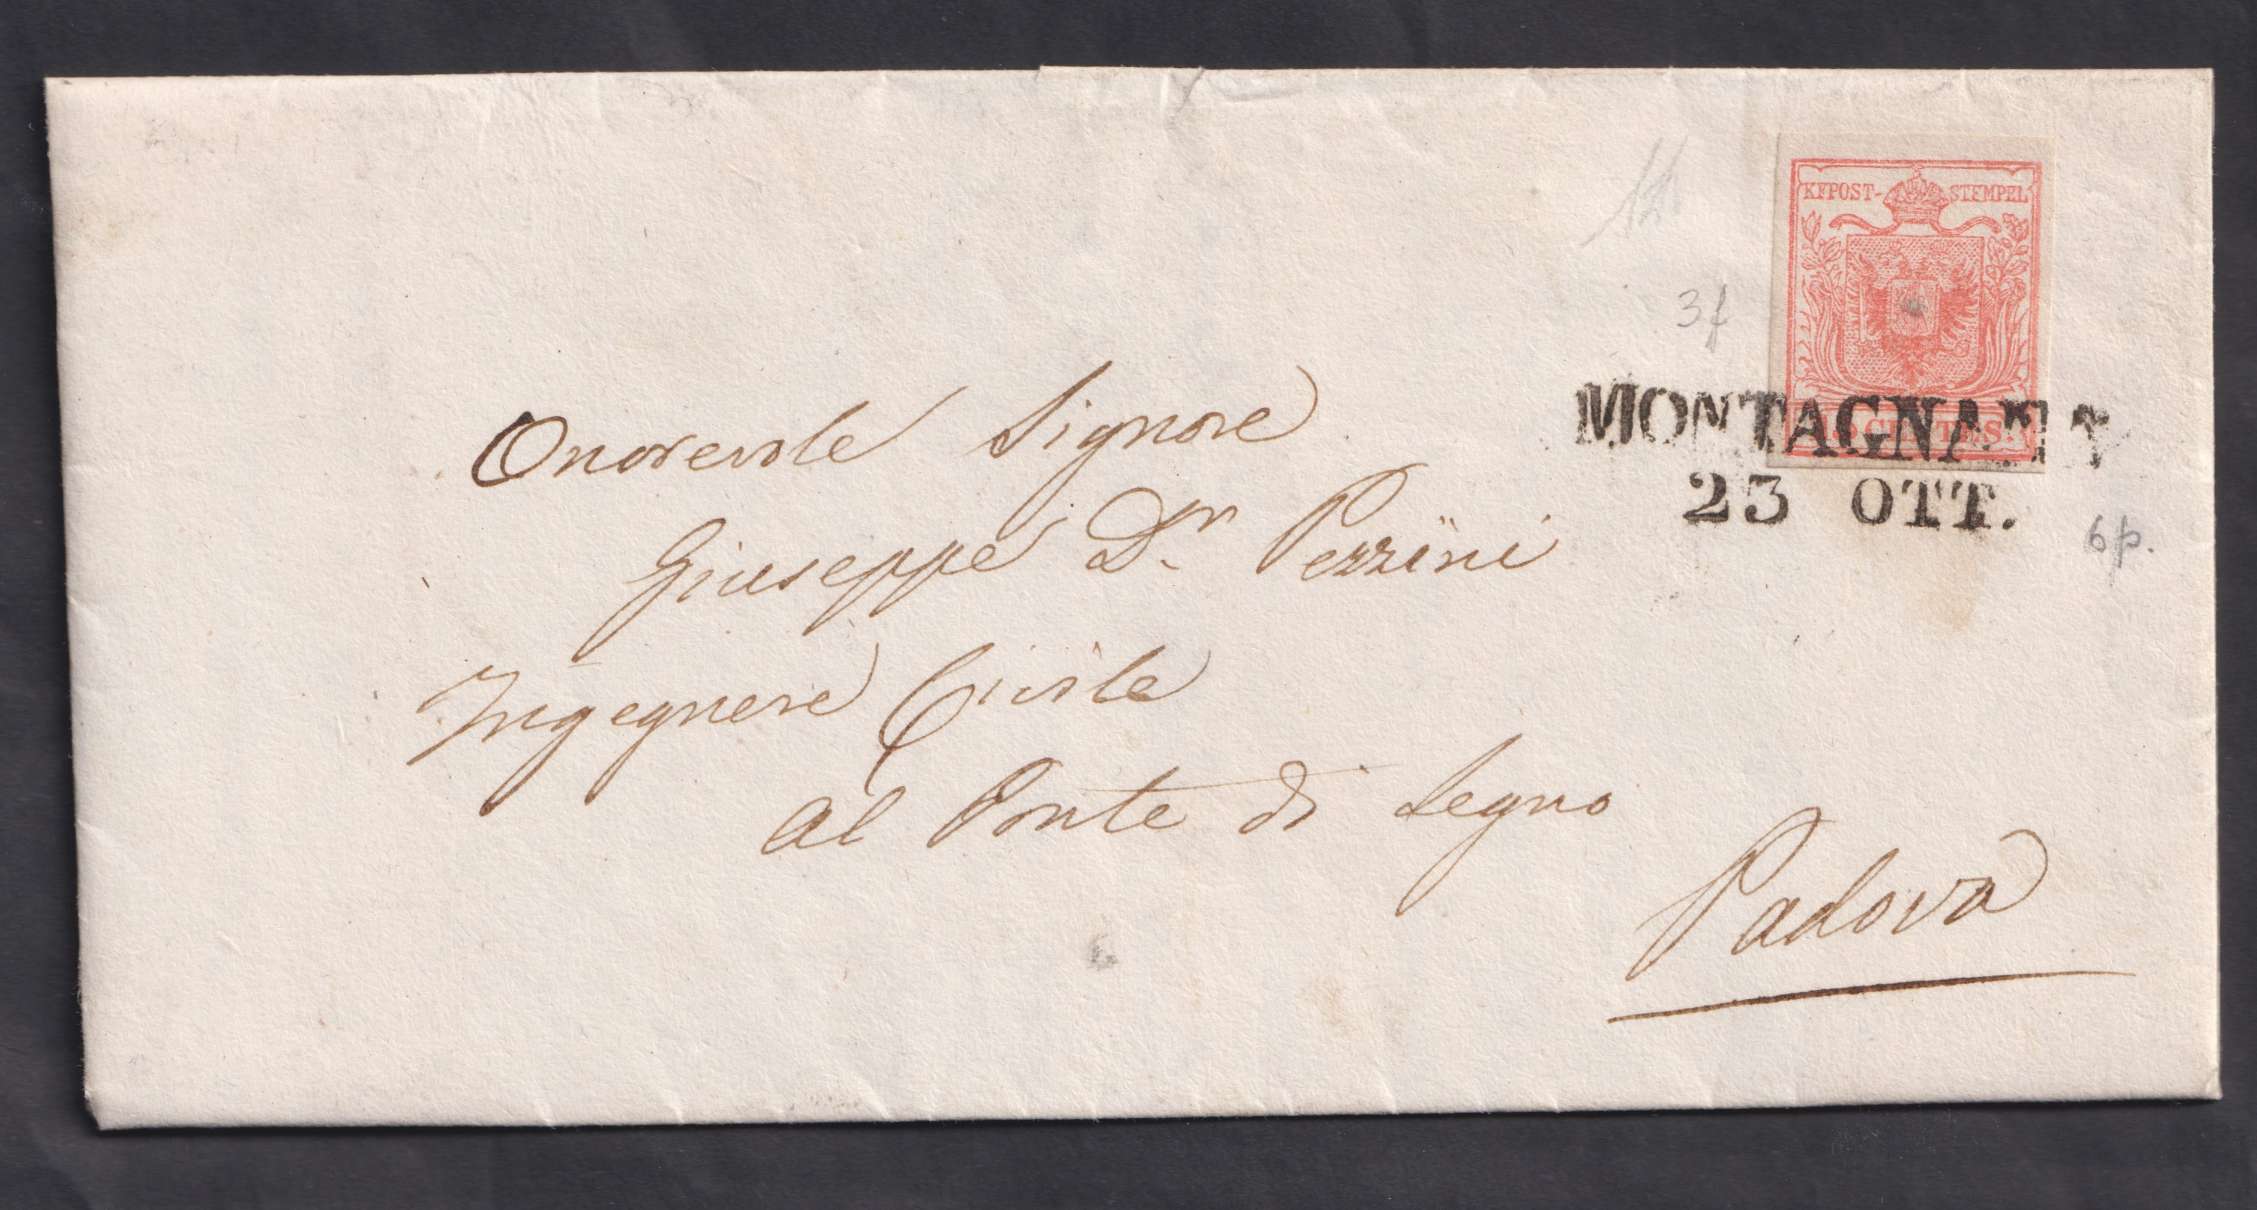 KKPOST- STEMPEL
15 CENTES.
3f
MONTAGNANA
23 OTT.
6p.
Onorevole Signore
Giuseppe Dr. Pezzini
Ingegnere Civile
al Ponte di Legno
Padova